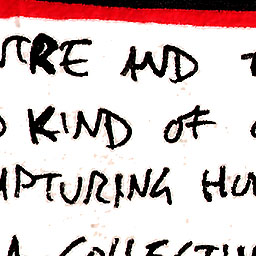 TRE AND T
KIND OF
APTURING HU
A COLLECTIV